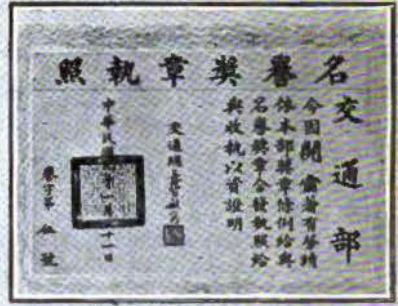 名譽獎章執照
交通部
今因開 當著有勞績
依本部獎章條例給與
名譽獎章合發執照給
與收執以資證明
交通總長
中華民國 年一月 十一日
譽字第 伍 號